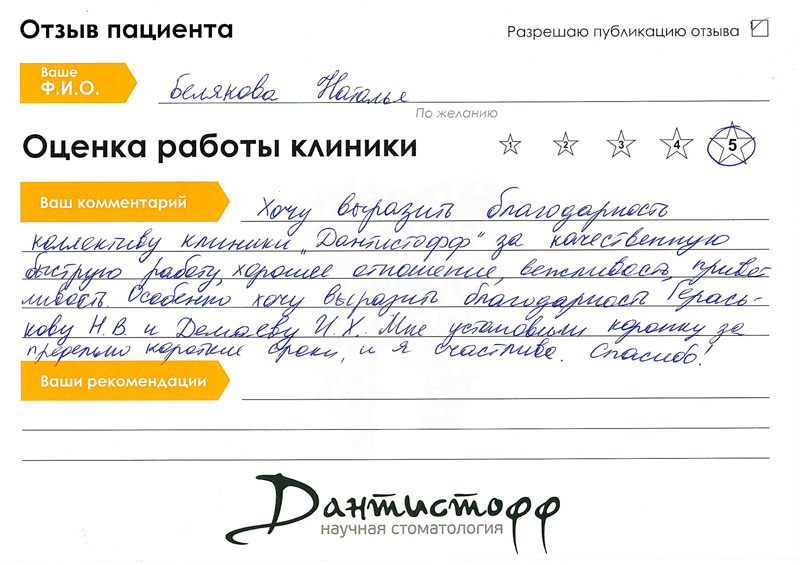 Отзыв пациента
Разрешаю публикацию отзыва
Ваше
Ф.И.О.
Белякова Наталья
По желанию
Оценка работы клиники
1 2 3 4 5
Ваш комментарий
Хочу выразить благодарность
коллективу клиники „Дантистофф“ за качественную
быструю работу, хорошее отношение, вежливость, привет-
ливость. Особенно хочу выразить благодарность Герась-
кову Н.В. и Демаеву И.Х. Мне установили коронку за
предельно короткие сроки, и я счастлива. Спасибо!
Ваши рекомендации
Дантистофф
научная стоматология